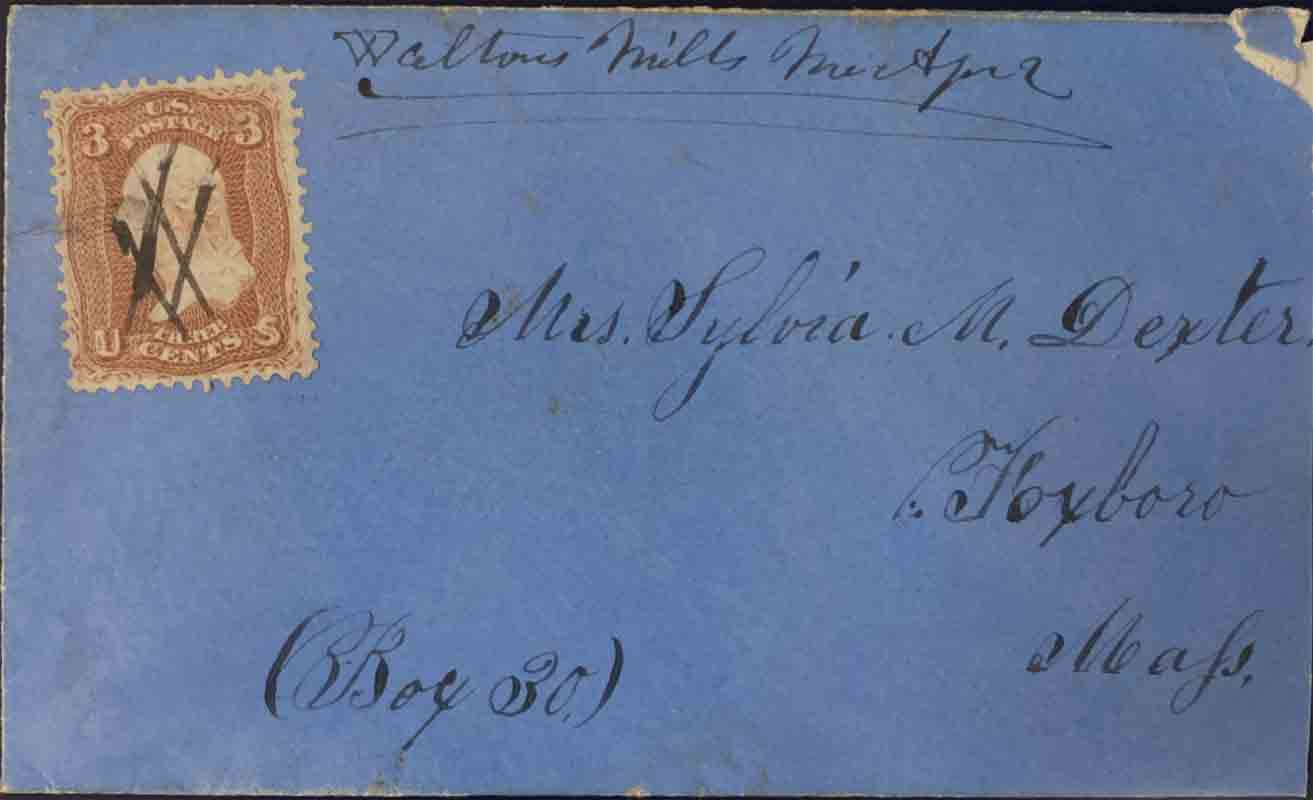 Waltons Mills Me Apr 2
U.S.
POSTAGE
3 3
U THREE S
CENTS
Mrs. Sylvia M. Dexter.
Foxboro
Mass.
(Box 30.)